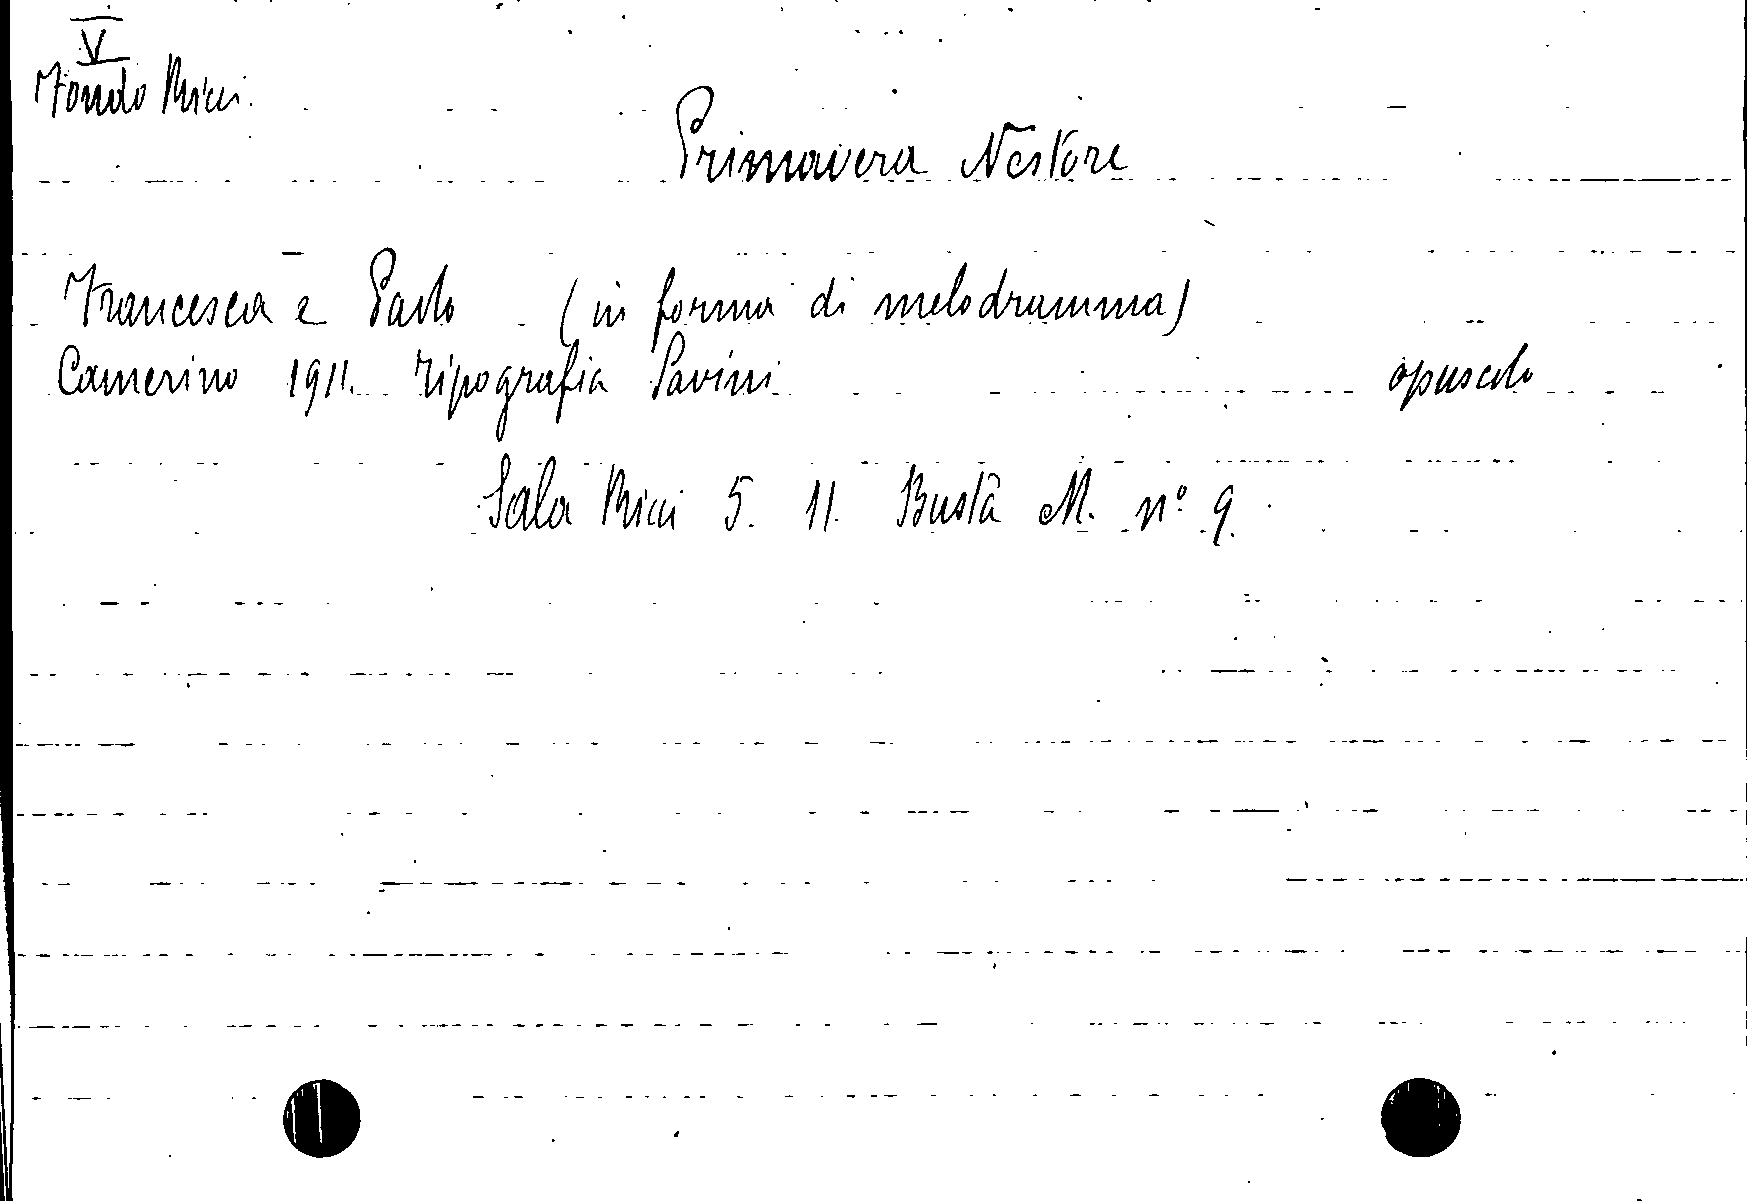 V
Fondo Ricci.
Primavera Nestore
Francesca e Paolo (in forma di melodramma)
Camerino 1911. Tipografia Savini opuscolo
Sala Ricci 5. 11. Busta M. nº 9.